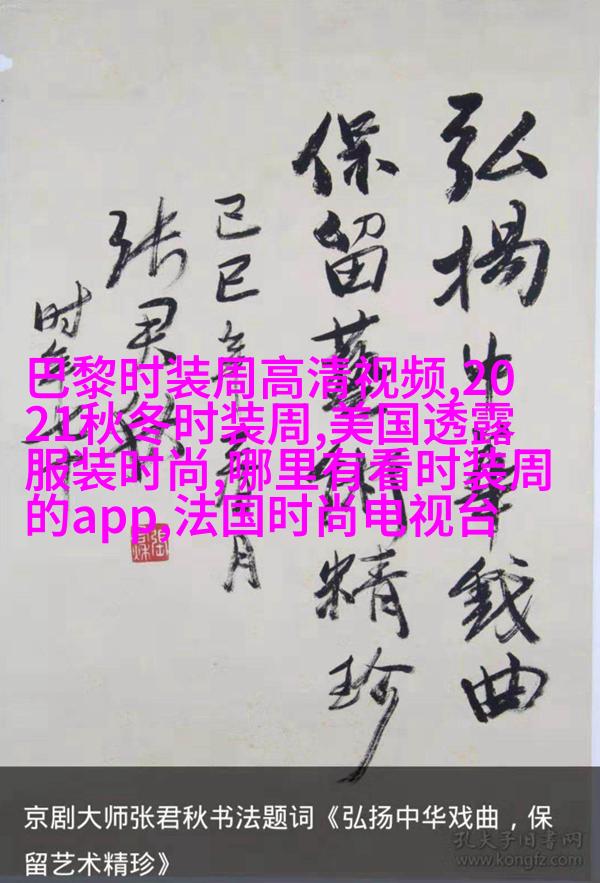 弘揚中華戲曲
保留藝術精珍
己巳年
月
张君秋
时年
巴黎时装周高清视频,20
21秋冬时装周,美国透露
服装时尚,哪里有看时装周
的app,法国时尚电视台
京剧大师张君秋书法题词《弘扬中华戏曲，保
留艺术精珍》
孔夫子旧书网
www.kongfz.com